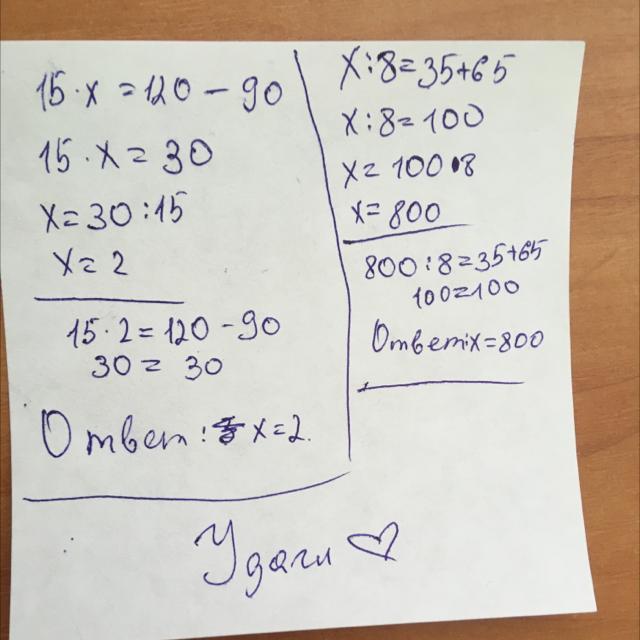 15·x=120-90
15·x=30
x=30:15
x=2
15·2=120-90
30=30
Ответ: x=2.
x:8=35+65
x:8=100
x=100·8
x=800
800:8=35+65
100=100
Ответ:x=800
Удачи ♡